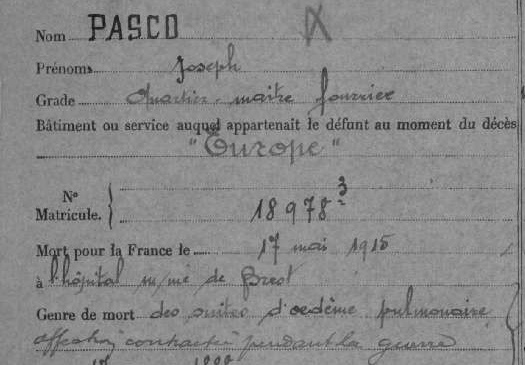 Nom PASCO
Prénoms Joseph
Grade Quartier-maître fourrier
Bâtiment ou service auquel appartenait le défunt au moment du décès
"Europe"
N°
Matricule. 18978 3/2
Mort pour la France le 17 mai 1915
à l'hôpital m/me de Brest
Genre de mort des suites d'oedème pulmonaire
affection contractée pendant la guerre